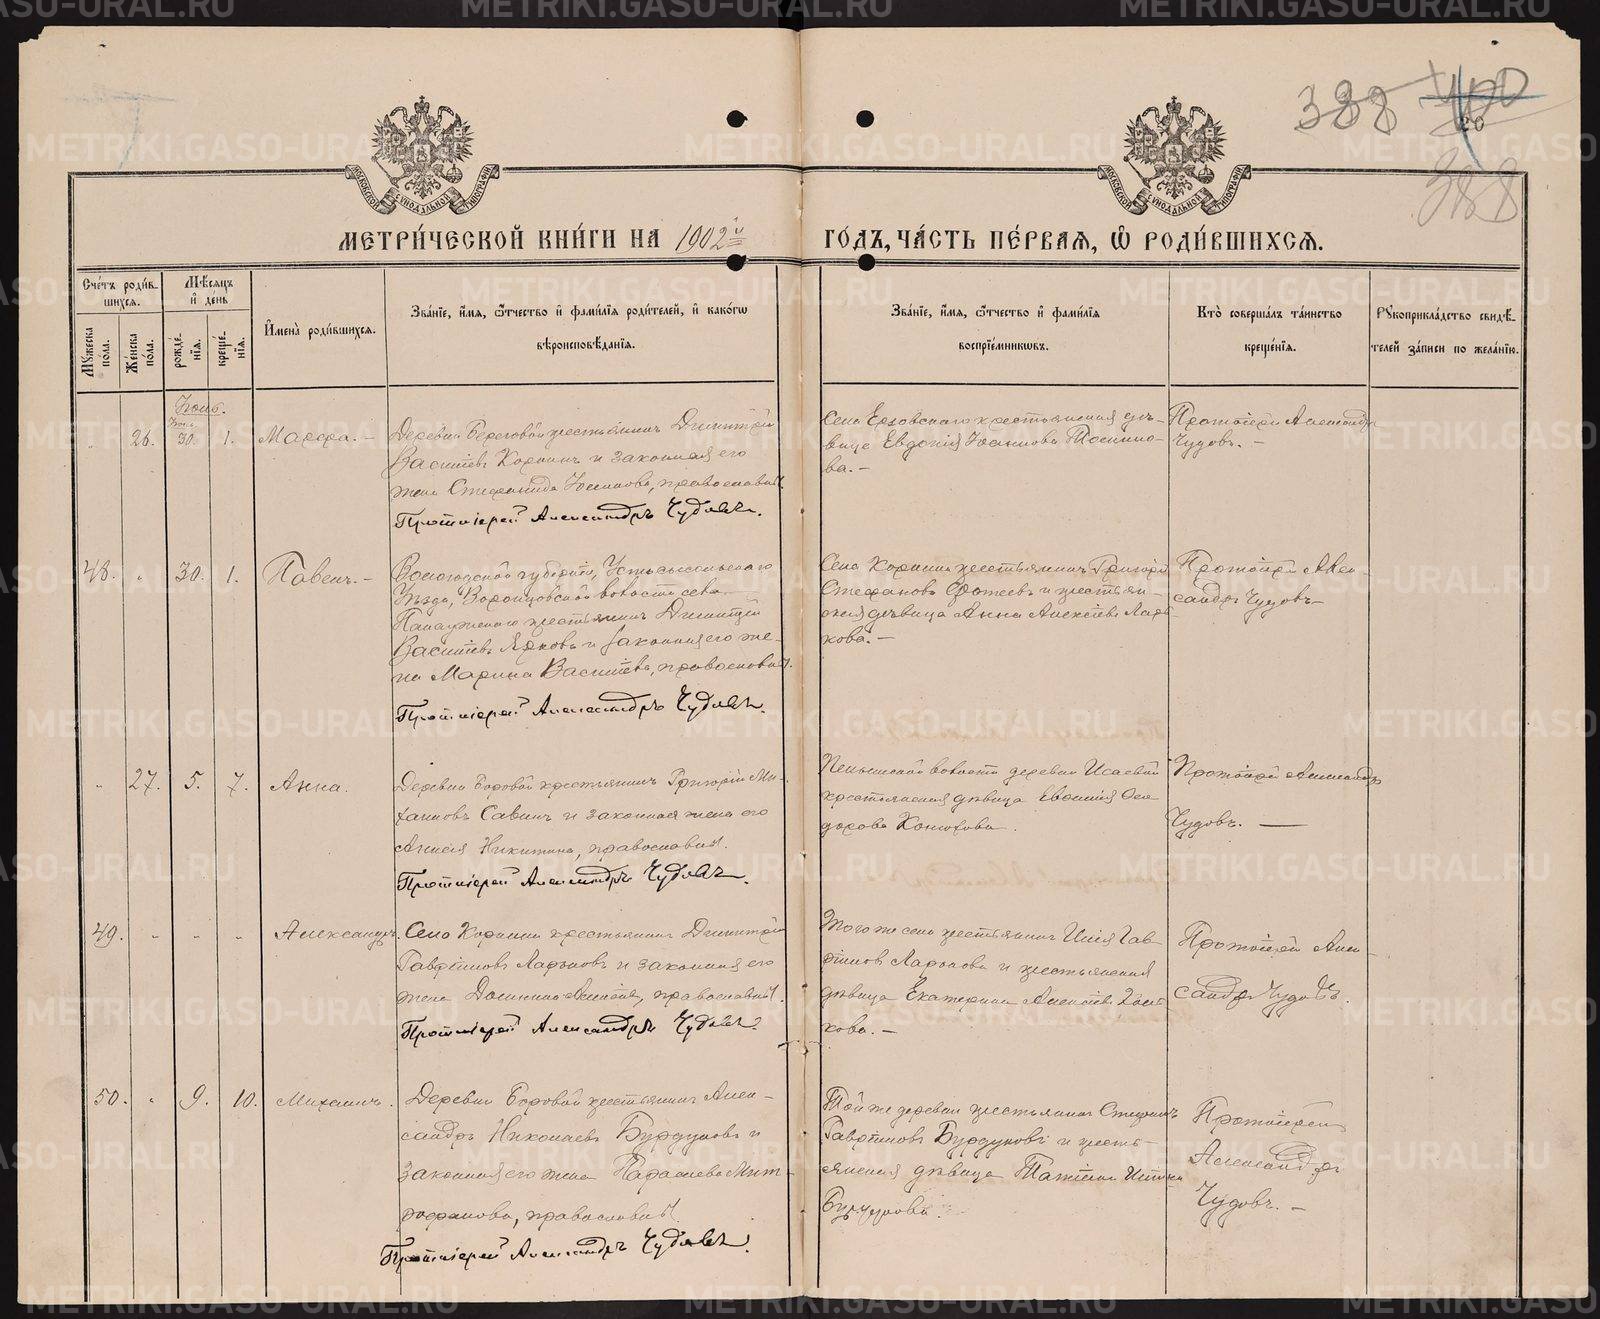 388 400
20
388
МЕТРИ́ЧЕСКОЙ КНИ́ГИ НА 1902й ГО́ДЪ, ЧА́СТЬ ПЕ́РВАЯ, Ѡ҆ РОДИ́ВШИХСЯ.
Сче́тъ роди́вшихся.
Мꙋ́жеска по́ла.
Же́нска по́ла.
Мѣ́сяцъ и҆ де́нь
рожде́нїя.
креще́нїя.
И҆мена̀ роди́вшихся.
Зва́нїе, и҆́мя, ѻ҆́тчество и҆ фами́лїя роди́телей, и҆ како́гѡ
вѣроисповѣ́данїя.
Зва́нїе, и҆́мя, ѻ҆́тчество и҆ фами́лїя
воспрїе́мникѡвъ.
Кто̀ соверша́лъ та́инство
креще́нїя.
Рꙋкоприкла́дство свидѣ́-
телей за́писи по жела́нїю.
26. 30. 1. Марѳа. –
Деревни Береговой крестьянинъ Димитрій
Васильевъ и законная его
жена Стефанида православные.
Протоіерей Александръ Чудовъ.
Села крестьянская дѣ-
вица Евдокія Іоаннова
ва. –
Протоіерей Александръ
Чудовъ. –
48. " 30. 1. Павелъ. –
Вологодской губерніи, Устьсысольскаго
уѣзда, Воронцовской волости села
крестьянинъ Димитрій
Васильевъ Ярковъ и законная его же-
на Марина Васильева, православные.
Протоіерей Александръ Чудовъ.
Села крестьянинъ Григорій
Стефановъ Фотеевъ и крестьян-
ская дѣвица Анна Алексѣева Ларь-
кова. –
Протоіерей Алек-
сандръ Чудовъ –
" 27. 5. 7. Анна.
Деревни Боровой крестьянинъ Григорій Ми-
хаиловъ Савинъ и законная жена его
Никитина, православные.
Протоіерей Александръ Чудовъ.
волости деревни Исаевой
крестьянская дѣвица Ѳео-
дорова Конюхова.
Протоіерей Александръ
Чудовъ. —
49. " " " Александръ.
Села крестьянинъ Димитрій
Гавріиловъ и законная его
жена православные.
Протоіерей Александръ Чудовъ.
Того же села крестьянинъ Илія Гав-
ріиловъ и крестьянская
дѣвица Екатерина Алексѣева
кова. –
Протоіерей Алек-
сандръ Чудовъ.
50. " 9. 10. Михаилъ.
Деревни Боровой крестьянинъ Алек-
сандръ Николаевъ Бурдуковъ и
законная его жена Параскева Мит-
рофанова, православные.
Протоіерей Александръ Чудовъ.
Той же деревни крестьянинъ Стефанъ
Гавріиловъ Бурдуковъ и кресть-
янская дѣвица Татіана
Бурдукова.
Протоіерей
Александръ
Чудовъ. –
METRIKI.GASO-URAL.RU